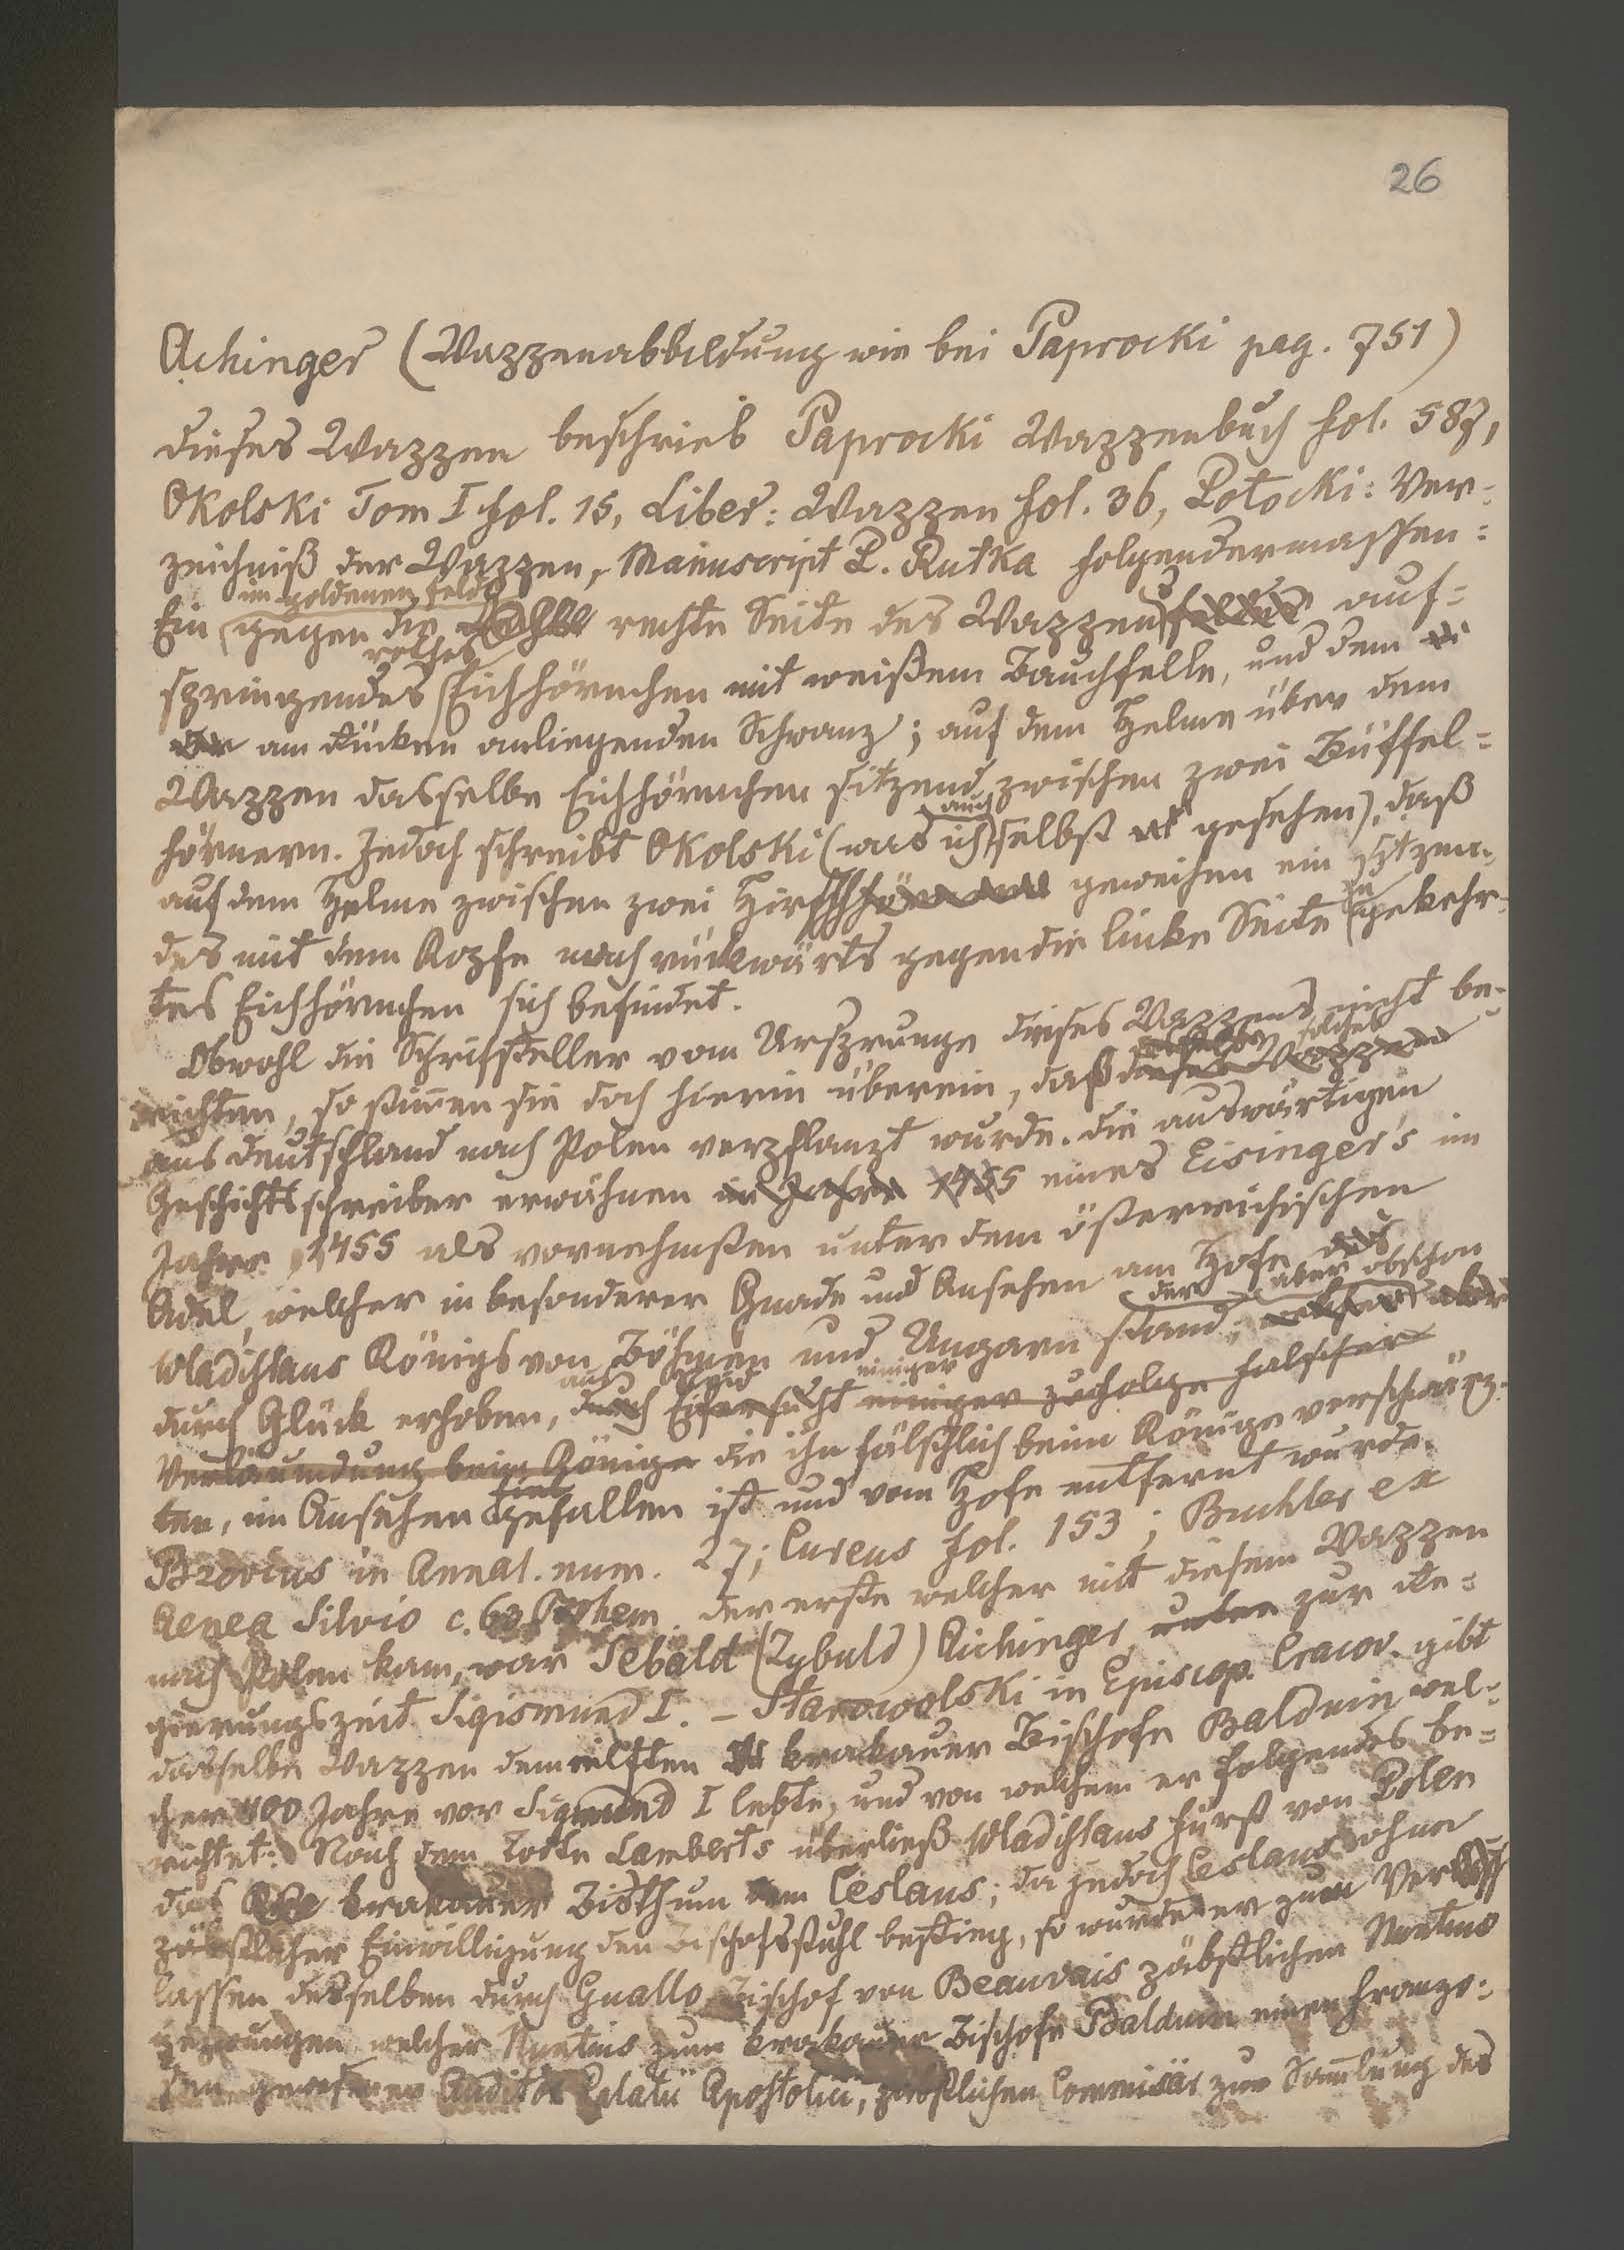 26
Achinger (Wappenabbildung wie bei Paprocki pag. 751)
dieses Wappen beschrieb Paprocki Wappenbuch fol. 587,
Okolski Tom I fol. 15, Liber: Wappen fol. 36, Potocki: Ver-
zeichniß der Wappen, Manuscript P. Rutka folgendermassen:
im goldenen Felde
Ein gegen die rechte Seite des Wappens auf-
rothes
springendes Eichhörnchen mit weißem Bauchfelle, und dem
am Rücken anliegenden Schwanz; auf dem Helme über dem
Wappen dasselbe Eichhörnchen sitzend zwischen zwei Büffel-
auch
hörnern. Jedoch schreibt Okolski (was ich selbst gesehen), daß
auf dem Helme zwischen zwei Hirschgeweihen ein sitzen-
des mit dem Kopfe nach rückwärts gegen die linke Seite gekehr-
tes Eichhörnchen sich befindet.
Obwohl die Schriftsteller vom Ursprunge dieses Wappens nicht be-
solches
richten, so stimmen sie doch hierin überein, daß dieses Wappen
aus Deutschland nach Polen verpflanzt wurde. Die auswärtigen
Geschichtsschreiber erwähnen im Jahre 1455 eines Eisinger's im
Jahre 1455 als vornehmsten unter dem österreichischen
Adel, welcher in besonderer Gnade und Ansehen am Hofe des
der aber obschon
Wladislaus Königs von Böhmen und Ungarn stand; welcher aber
aus Neid einiger
durch Glück erhoben, durch Eifersucht einiger zufolge falscher
Verläumdung beim Könige die ihn fälschlich beim Könige verschwärz-
fiel
ten, im Ansehen gefallen ist und vom Hofe entfernt wurde.
Bzovius in Annal. num. 27; Cureus fol. 153; Buchler ex
Aenea Silvio c. 63 Bohem. der erste welcher mit diesem Wappen
nach Polen kam, war Sebald (Zybuld) Aichinger unter zur Re-
gierungszeit Sigismund I. – Starowolski in Episcop. Cracov. gibt
dasselbe Wappen dem eilften krakauer Bischofe Balduin wel-
cher 400 Jahre vor Sigmund I lebte, und von welchem er folgendes be-
richtet: Nach dem Tode Lamberts überließ Wladislaus Fürst von Polen
das krakauer Bisthum dem Ceslaus; da jedoch Ceslaus ohne
päbstlicher Einwilligung den Bischofsstuhl bestieg, so wurde er zum Ver-
lassen desselben durch Guallo Bischof von Beauvais päbstlichen Nuntius
gezwungen welcher Nuntius zum krakauer Bischofe Balduin einen Franzo-
sen gewesenen Auditor Palatii Apostolici, päbstlichen Commisär zur Samlung des